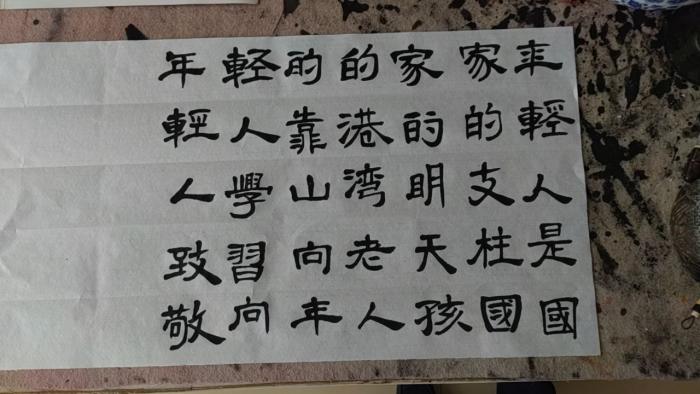 年輕人是國
家的支柱國
家的明天孩
的港湾老人
的靠山向年
轻人學習向
年輕人致敬